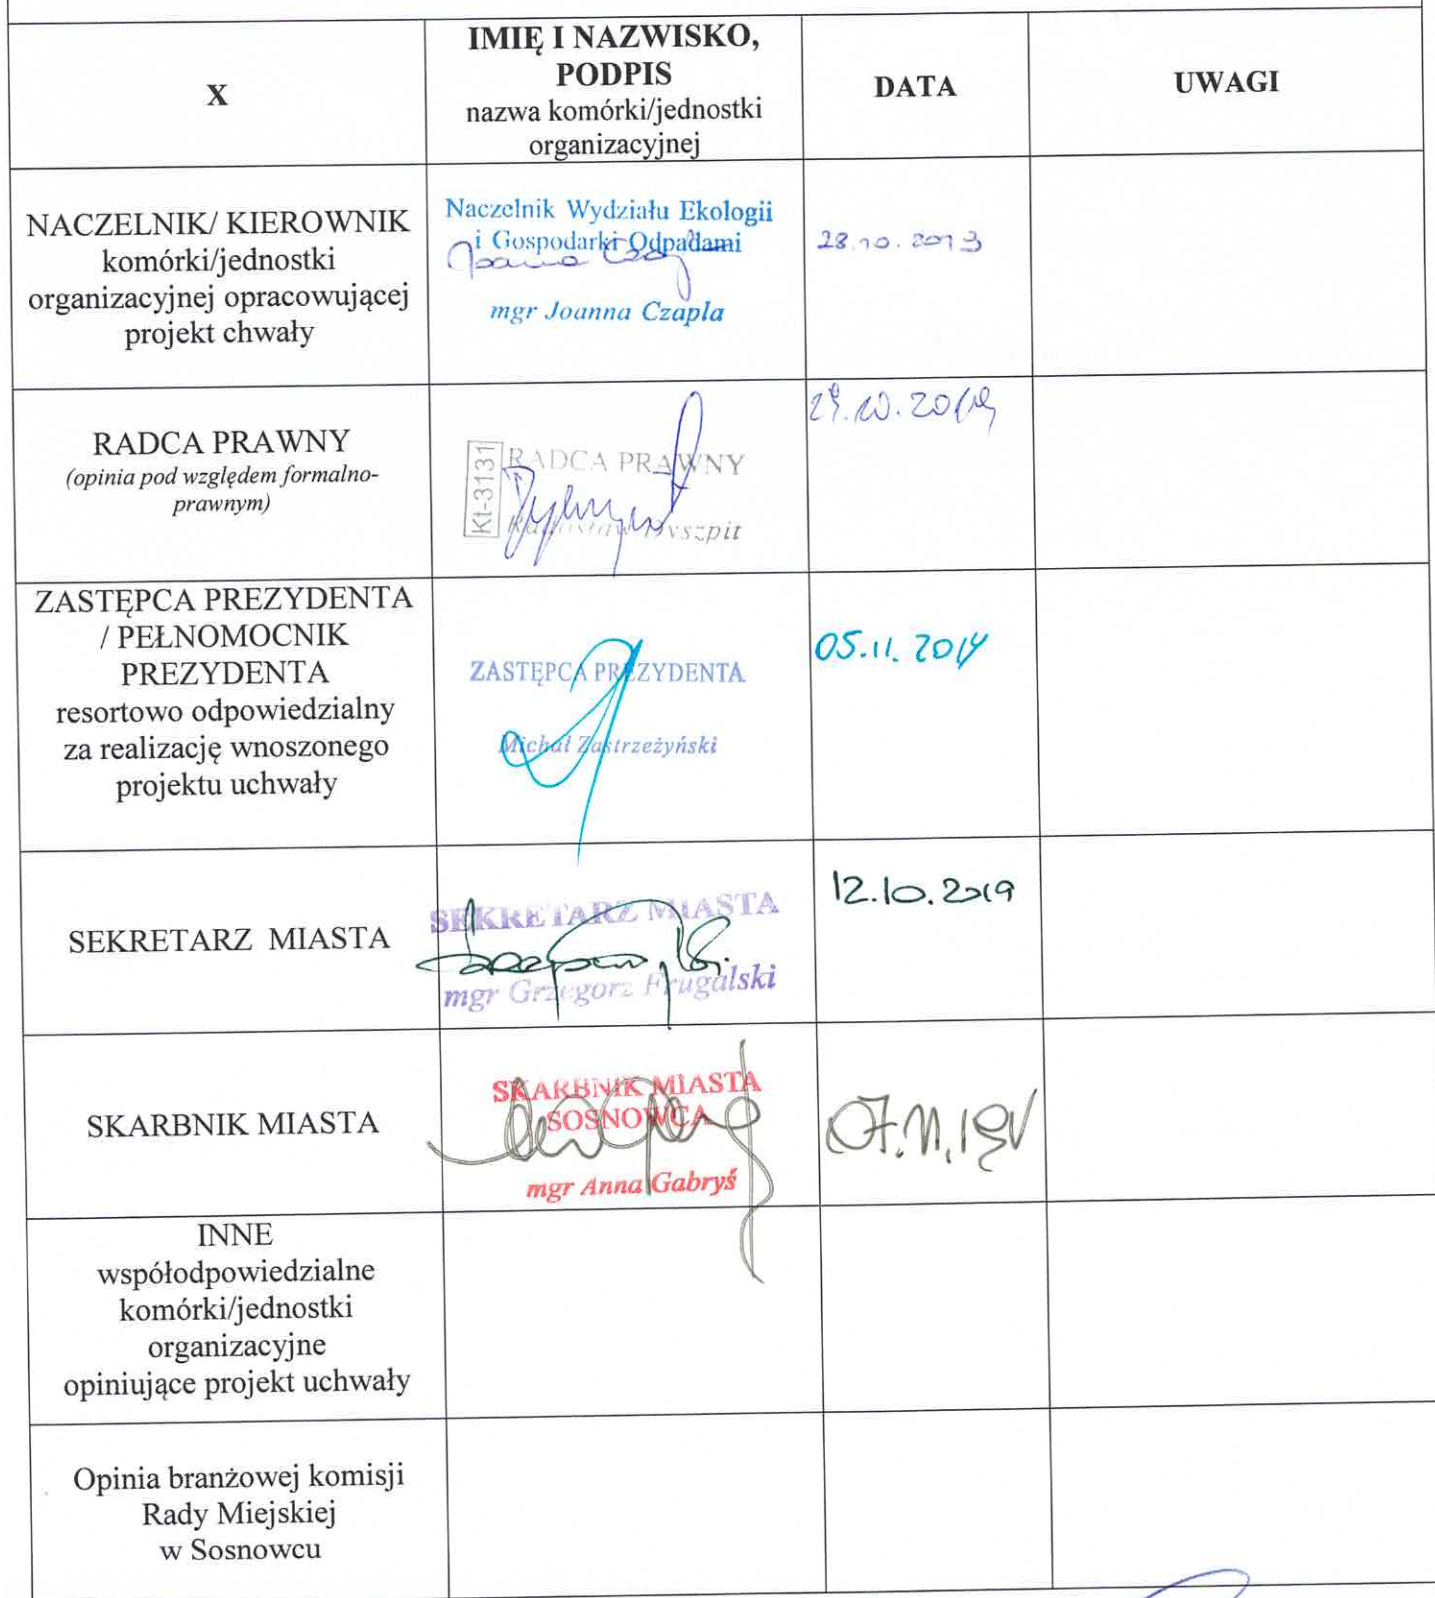 X
IMIĘ I NAZWISKO,
PODPIS
nazwa komórki/jednostki
organizacyjnej
DATA
UWAGI
NACZELNIK/ KIEROWNIK
komórki/jednostki
organizacyjnej opracowującej
projekt chwały
Naczelnik Wydziału Ekologii
i Gospodarki Odpadami
mgr Joanna Czapla
28.10.2013
RADCA PRAWNY
(opinia pod względem formalno-
prawnym)
Kt-3131
RADCA PRAWNY
29.10.2019
ZASTĘPCA PREZYDENTA
/ PEŁNOMOCNIK
PREZYDENTA
resortowo odpowiedzialny
za realizację wnoszonego
projektu uchwały
ZASTĘPCA PREZYDENTA
Michał Zastrzeżyński
05.11.2019
SEKRETARZ MIASTA
SEKRETARZ MIASTA
mgr Grzegorz Frugalski
12.10.2019
SKARBNIK MIASTA
SKARBNIK MIASTA
SOSNOWCA
mgr Anna Gabryś
07.11.19
INNE
współodpowiedzialne
komórki/jednostki
organizacyjne
opiniujące projekt uchwały
Opinia branżowej komisji
Rady Miejskiej
w Sosnowcu